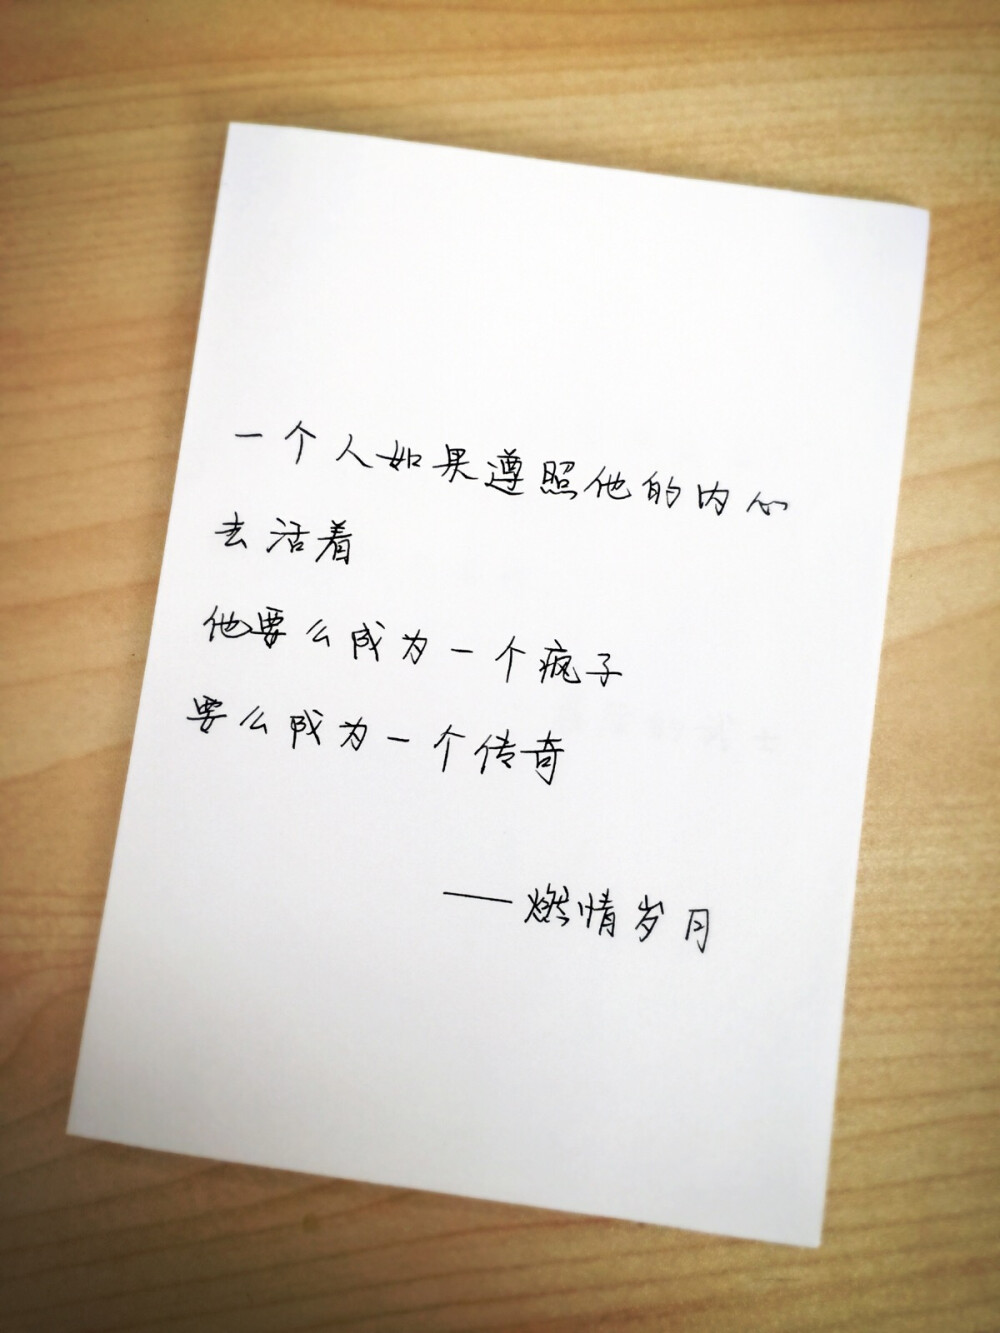 一个人如果遵照他的内心
去活着
他要么成为一个疯子
要么成为一个传奇
——燃情岁月